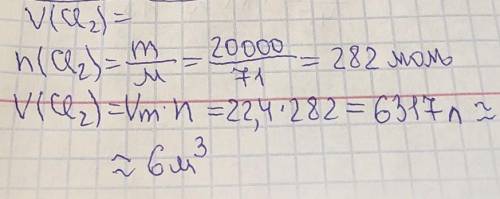 V(Cl₂)=
n(Cl₂)=m/M=20000/71=282 моль
V(Cl₂)=Vm·n=22,4·282=6317л≈
≈6м³